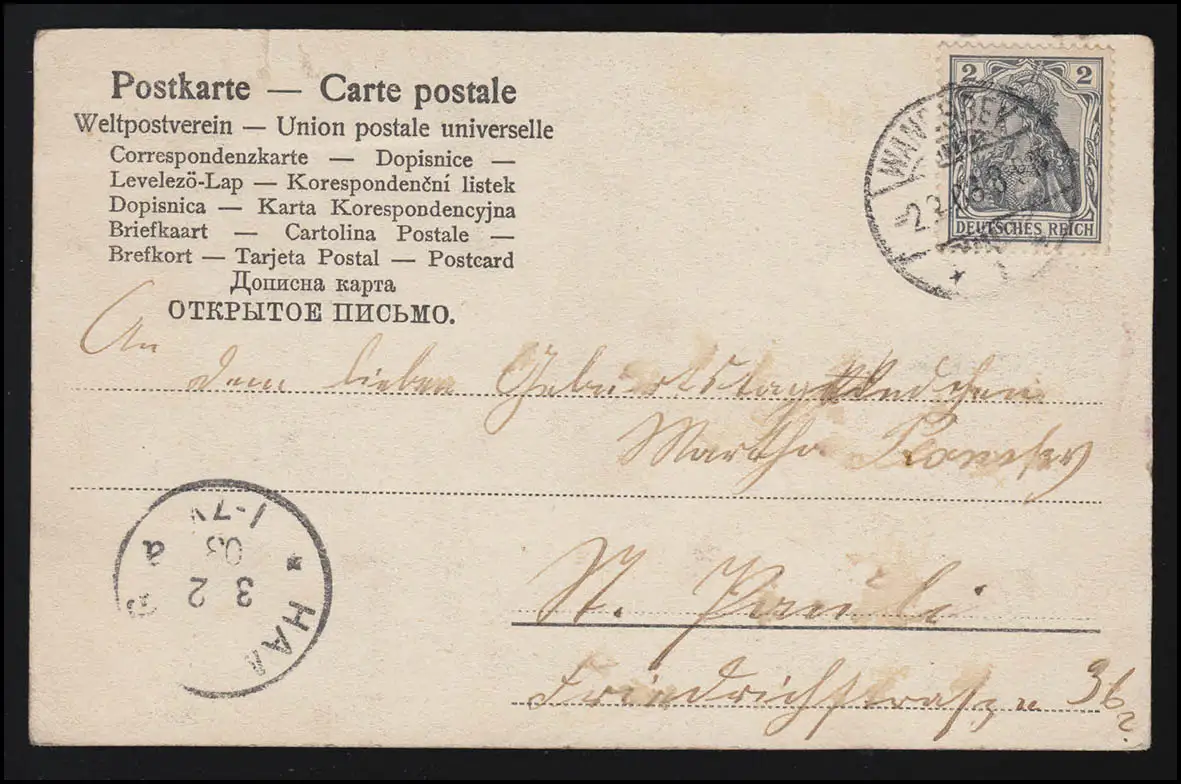 Postkarte — Carte postale
Weltpostverein — Union postale universelle
Correspondenzkarte — Dopisnice —
Levelező-Lap — Korespondenční listek
Dopisnica — Karta Korespondencyjna
Briefkaart — Cartolina Postale —
Brefkort — Tarjeta Postal — Postcard
Дописна карта
ОТКРЫТОЕ ПИСЬМО.
2 2
DEUTSCHES REICH
WANDSBEK
An
dem lieben Geburtstagskindchen
Martha
St. Pauli
Friedrichstrasse 36
* HAM
3 2
03
1-7V
a